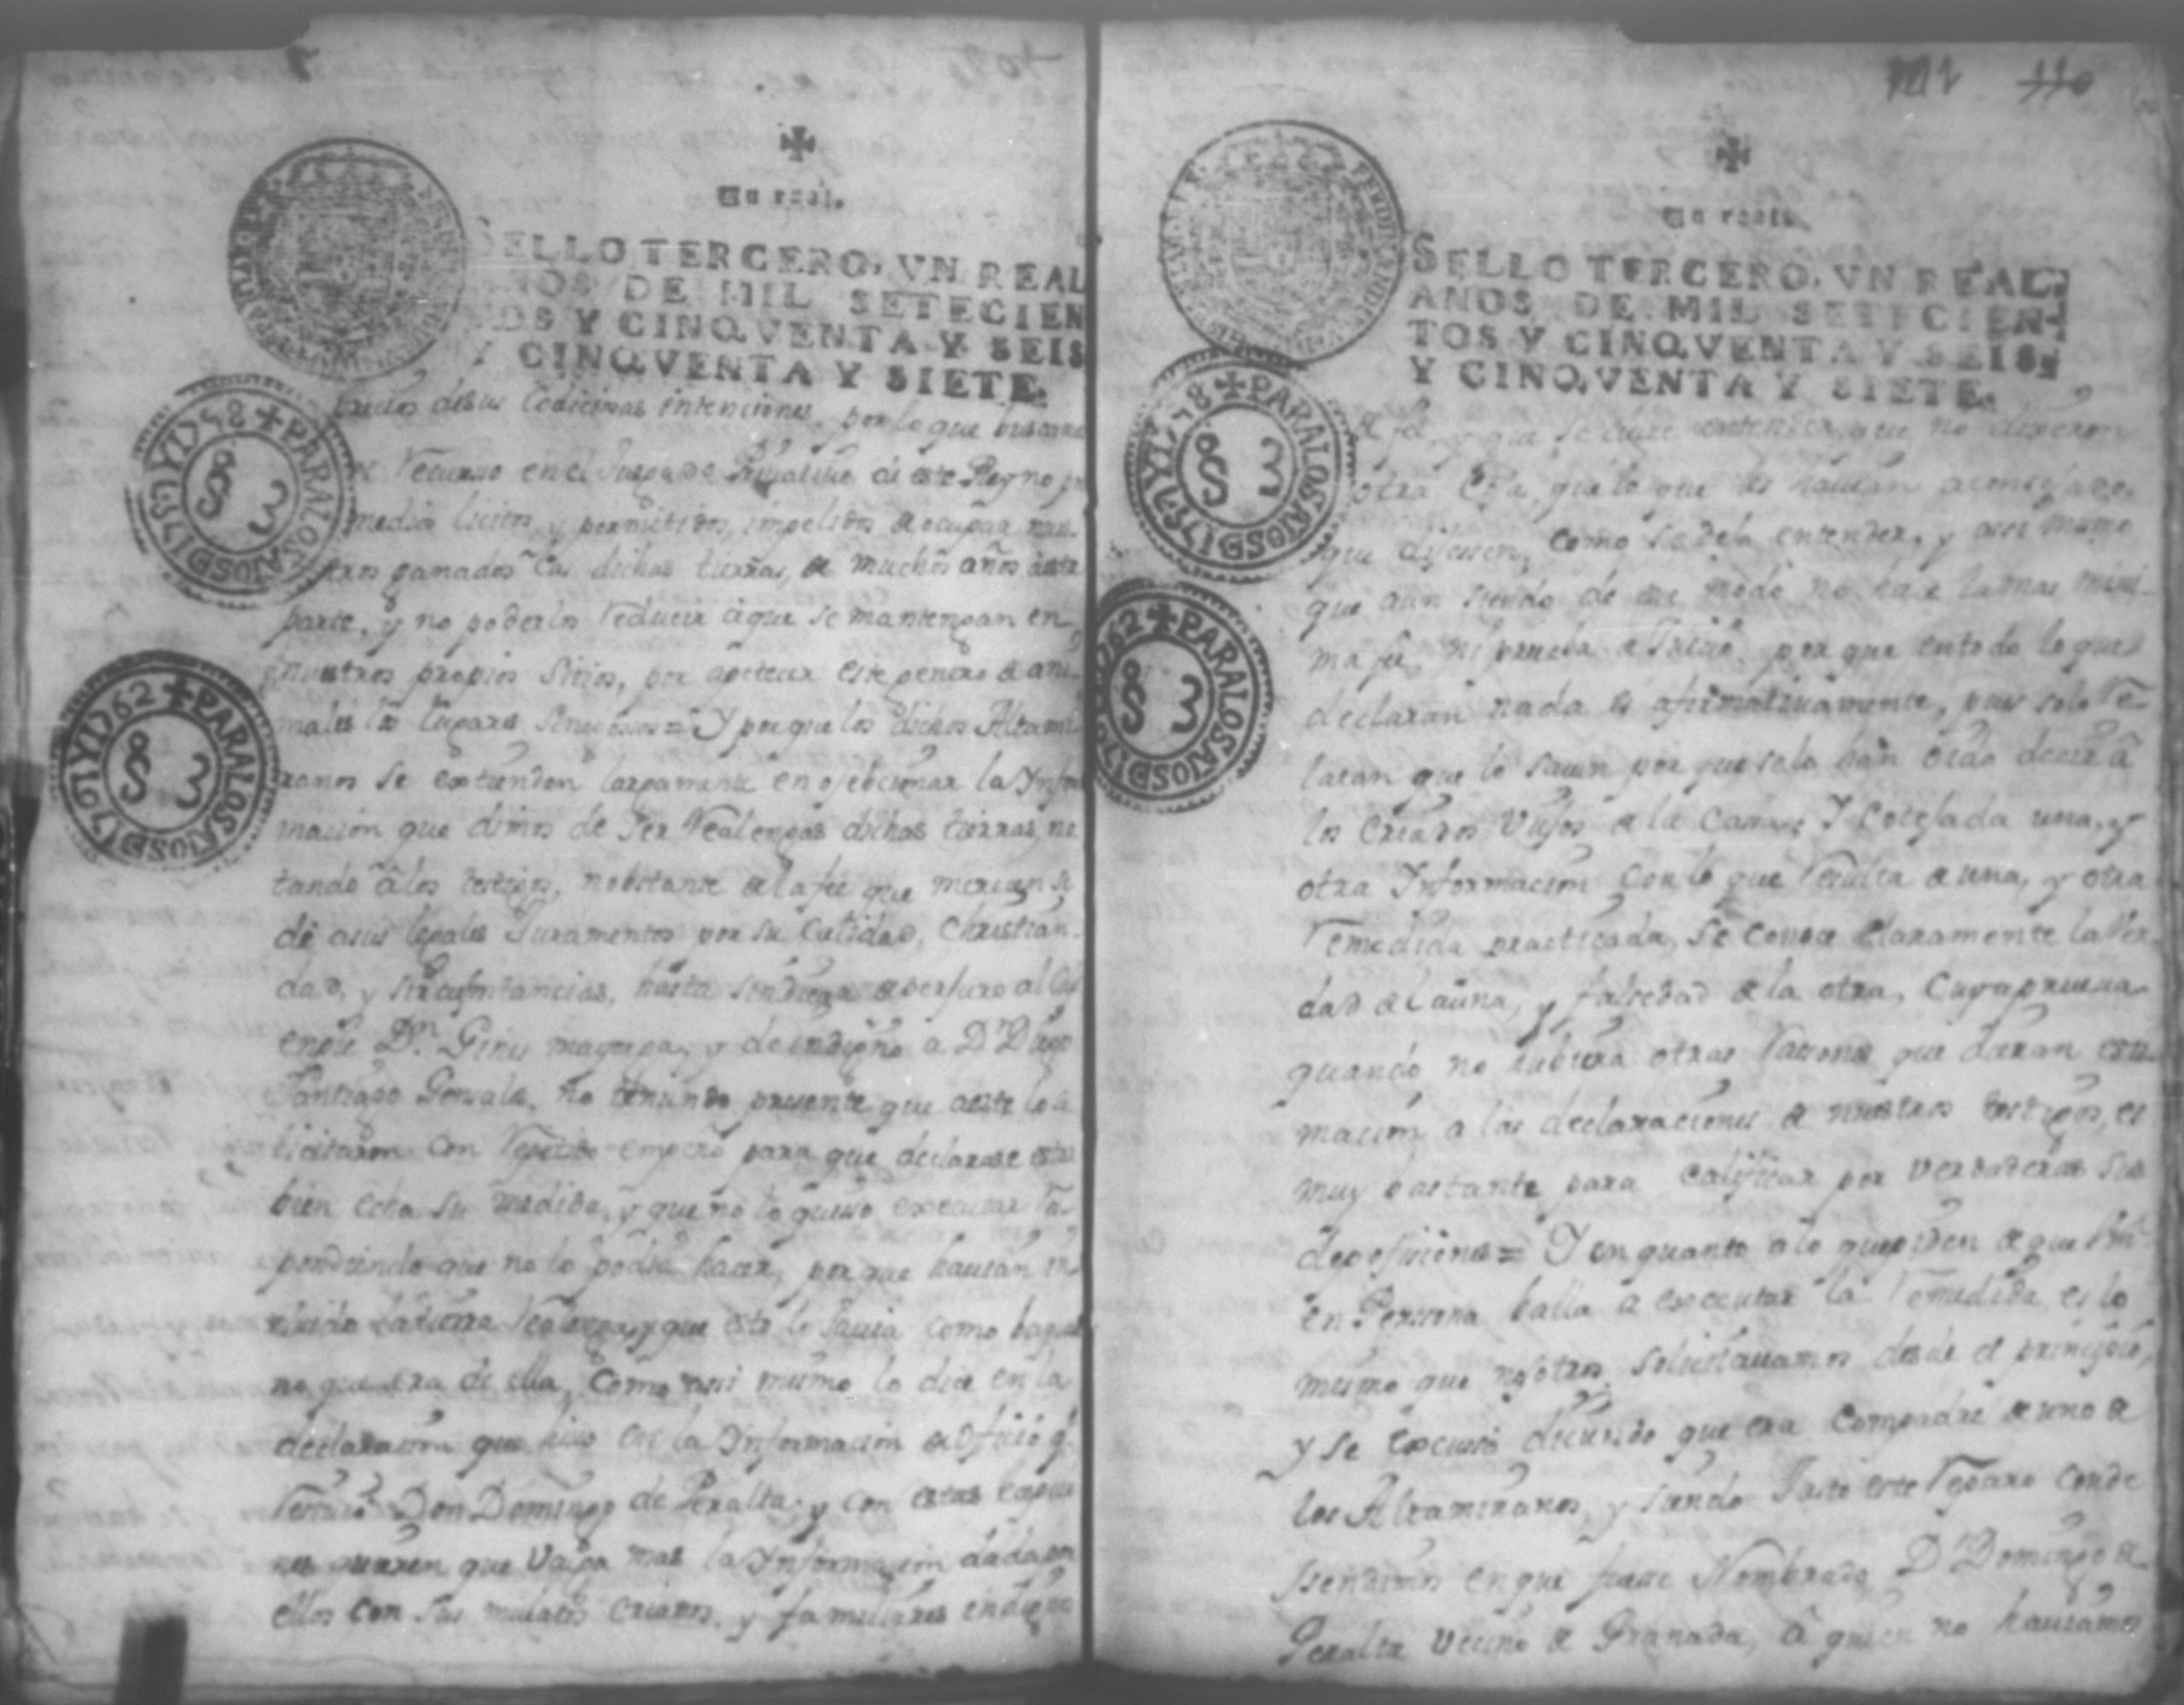 Un real.
SELLO TERCERO, VN REAL
AÑOS DE MIL SETECIEN
TOS Y CINQVENTA Y SEIS
Y CINQVENTA Y SIETE.
PARA LOS AÑOS DE 1757 Y 1758
S 3
PARA LOS AÑOS DE 1761 Y 1762
S 3
de sus Codiciosas intenciones, por lo que
Recurso en el de este Reyno
medios licitos, y permitidos, de ocupar nues
tros ganados las dichas tierras, de muchos años
parte, y no poderlos reducir à que se mantengan en
nuestros propios sitios, por apetecer este genero de ani
males los lugares = Y porque los dichos Altami
ranos se extienden largamente en la Infor
macion que dimos de ser Realengas dichas tierras, no
tando à los testigos, nobstante de la fee que merecen
de asus legales Juramentos por su Calidad, Christian
dad, y sircunstancias, hasta de perjuro al
Dn. Gines y de indigno a Dn Diego
Santiago Gonsales, no teniendo presente que
licitaron con empeño para que declarase
bien echa su medida, y que no lo quiso executar res
pondiendo que no lo podia hacer, por que hauian in
cluido la tierra Realenga, y que esto lo sauia como
no que era de ella, como asi mismo lo dice en la
declaracion que hiso en la Informacion de oficio q.
Don Domingo de Peralta, y con estas
nes quieren que valga mas la Informacion dada por
ellos con sus mulatos criados, y familiares indignos
111 110
Un real.
SELLO TERCERO, VN REAL,
AÑOS DE MIL SETECIEN-
TOS Y CINQVENTA Y SEIS,
Y CINQVENTA Y SIETE.
PARA LOS AÑOS DE 1757 Y 1758
S 3
PARA LOS AÑOS DE 1761 Y 1762
S 3
de fee, y que se deue entender, que no dixeron
otra cosa, que lo que les hauian aconsejado,
que dijesen, como se deja entender, y asi mismo
que aun siendo de ese modo no hase la mas mini
ma fee, ni prueba por que en todo lo que
declaran nada es afirmatiuamente, pues solo re
latan que lo sauen por que se lo han oido decir à
los criados viejos de la Casa = Y cotejada una, y
otra Informacion con lo que resulta de una, y otra
remedida practicada, se conose claramente la ver
dad de la una, y falsedad de la otra, cuya prueua
quando no hubiera otras rasones que dieran esti
macion a las declaraciones de nuestros testigos, es
muy bastante para calificar por verdaderas sus
deposiciones = Y en quanto a lo que piden de que Vm
en Persona balla a executar la remedida, es lo
mismo que nosotros solicitauamos desde el principio,
y se excusó diciendo que era Compadre de uno de
los Altamiranos, y siendo Justo este reparo conde
sendimos en que fuese Nombrado Dn Domingo de
Peralta vecino de Granada, à quien no hauiamos